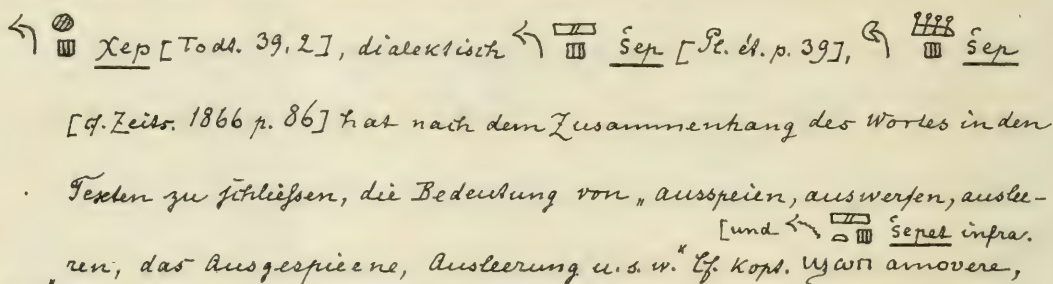 χep [Todt. 39,2], dialektisch šep [Pl. ét. p. 39], šep
[cf. Zeits. 1866 p. 86] hat nach dem Zusammenhang des Wortes in den
Texten zu schließen, die Bedeutung von „ausspeien, auswerfen, auslee-
[und šepet infra.
ren, das Ausgespieene, Ausleerung u. s. w." Cf. Kopt. amovere,